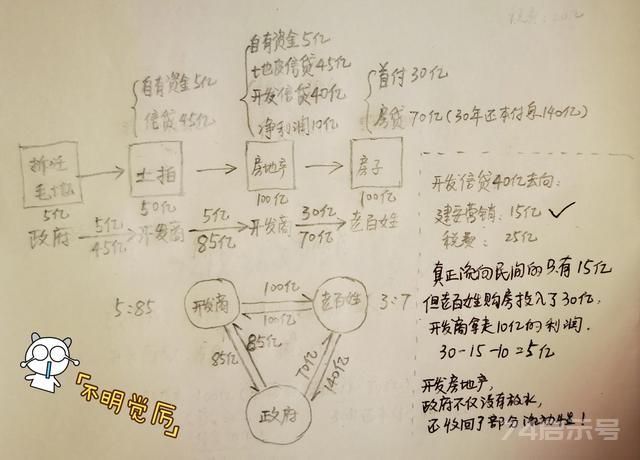 税费：20亿
自有资金5亿
信贷45亿
自有资金5亿
土地信贷45亿
开发信贷40亿
净利润10亿
首付30亿
房贷70亿(30年还本付息140亿)
拆迁
毛地
土拍
房地产
房子
5亿
50亿
100亿
100亿
政府
5亿
45亿
开发商
5亿
85亿
开发商
30亿
70亿
老百姓
开发信贷40亿去向:
建安营销:15亿 ✓
税费: 25亿
真正流向民间的只有15亿
但老百姓购房投入了30亿,
开发商拿走10亿的利润.
30-15-10=5亿
开发房地产,
政府不仅没有放水,
还收回了部分流动性!
5:85
开发商
100亿
100亿
老百姓
3:7
85亿
85亿
70亿
140亿
政府
「不明觉厉」
74启示号